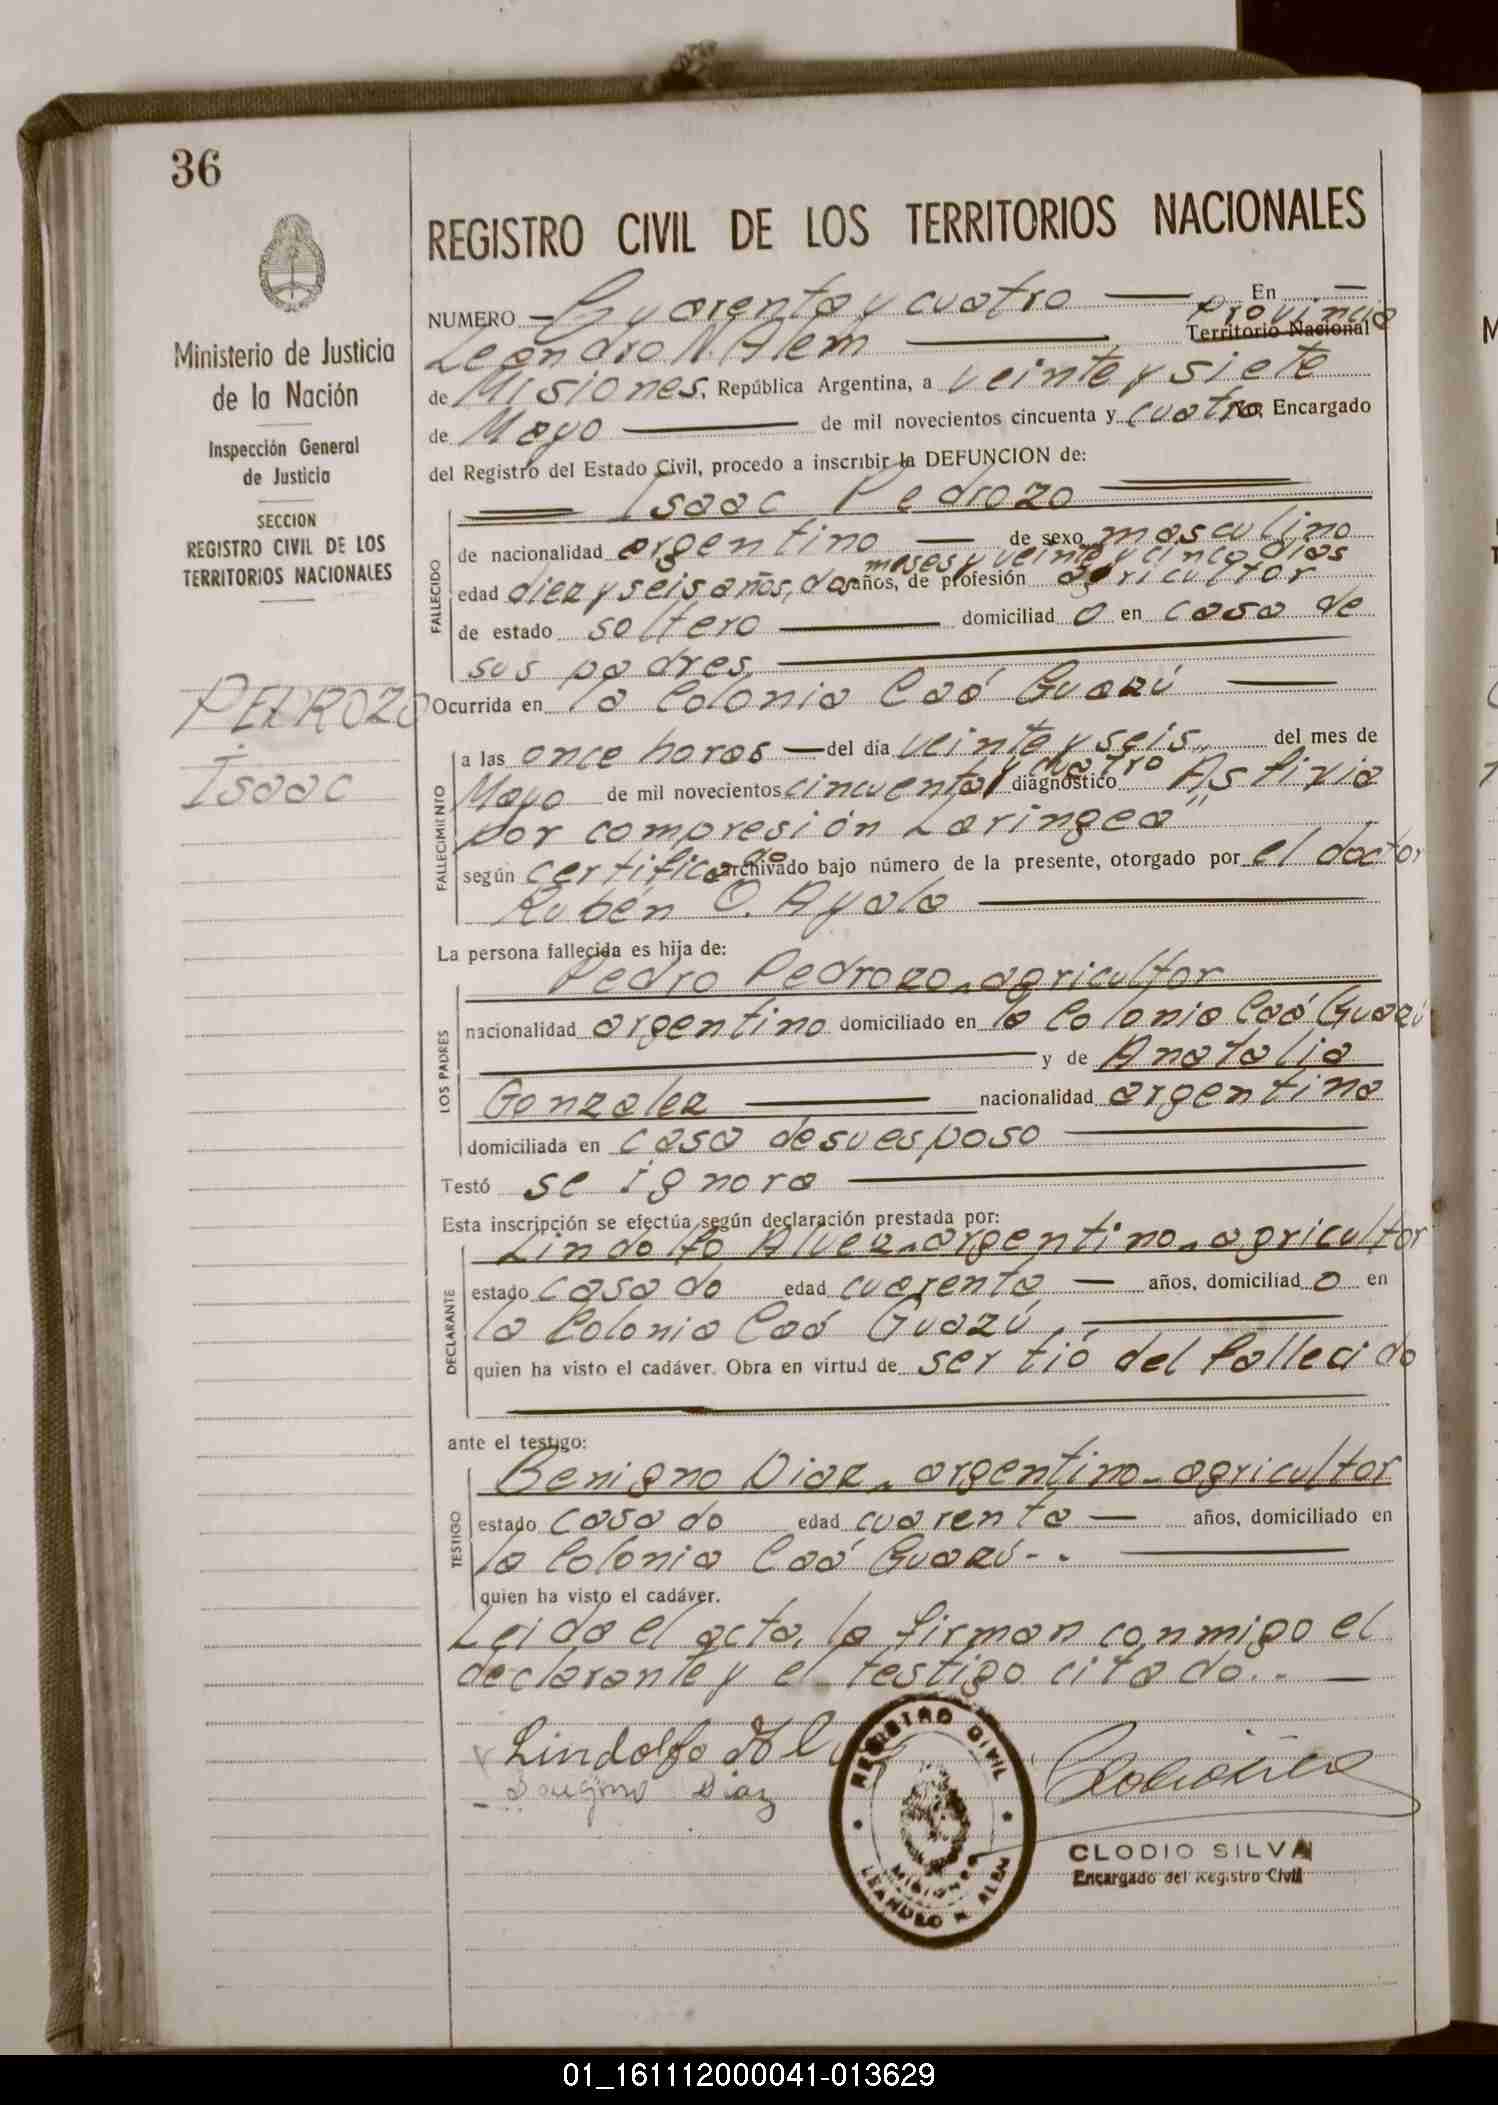 36
Ministerio de Justicia
de la Nación
Inspección General
de Justicia
SECCION
REGISTRO CIVIL DE LOS
TERRITORIOS NACIONALES
PEDROZO
Isaac
REGISTRO CIVIL DE LOS TERRITORIOS NACIONALES
NUMERO — Cuarenta y cuatro — En —
Leandro N. Alem — Provincia Territorio Nacional
de Misiones, República Argentina, a veinte y siete
de Mayo — de mil novecientos cincuenta y cuatro Yo, Encargado
del Registro del Estado Civil, procedo a inscribir la DEFUNCION de:
Isaac Pedrozo
FALLECIDO
de nacionalidad argentino — de sexo masculino
meses y veinte y cinco días
edad diez y seis años, dos años, de profesión agricultor
de estado soltero — domiciliad o en casa de
sus padres
Ocurrida en la Colonia Caá Guazú —
FALLECIMIENTO
a las once horas — del día veinte y seis del mes de
Mayo de mil novecientos cincuenta y cuatro diagnóstico "Asfixia
por compresión Laringea"
según certificado archivado bajo número de la presente, otorgado por el doctor
Rubén O. Ayala —
La persona fallecida es hija de:
LOS PADRES
Pedro Pedrozo - agricultor
nacionalidad argentino domiciliado en la Colonia Caá Guazú
— y de Anatalia
Gonzalez — nacionalidad argentina
domiciliada en casa de su esposo —
Testó se ignora —
Esta inscripción se efectúa según declaración prestada por:
DECLARANTE
Lindolfo Alvez - argentino - agricultor
estado casado edad cuarenta — años, domiciliad o en
la Colonia Caá Guazú —
quien ha visto el cadáver. Obra en virtud de ser tió del fallecido
ante el testigo:
TESTIGO
Benigno Diaz - argentino - agricultor
estado casado edad cuarenta — años, domiciliado en
la Colonia Caá Guazú -. —
quien ha visto el cadáver.
Leida el acta, la firman conmigo el
declarante y el testigo citado.. —
Lindolfo
Diaz
REGISTRO CIVIL
MISIONES
LEANDRO N. ALEM
CLODIO SILVA
Encargado del Registro Civil
01_161112000041-013629